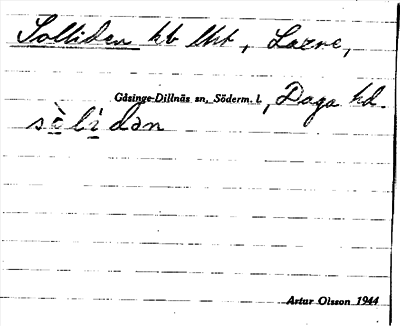 Solliden hb lht, Lazne,
Gåsinge-Dillnäs sn, Söderm. l., Daga hd.
sòlidan
Artur Olsson 1944